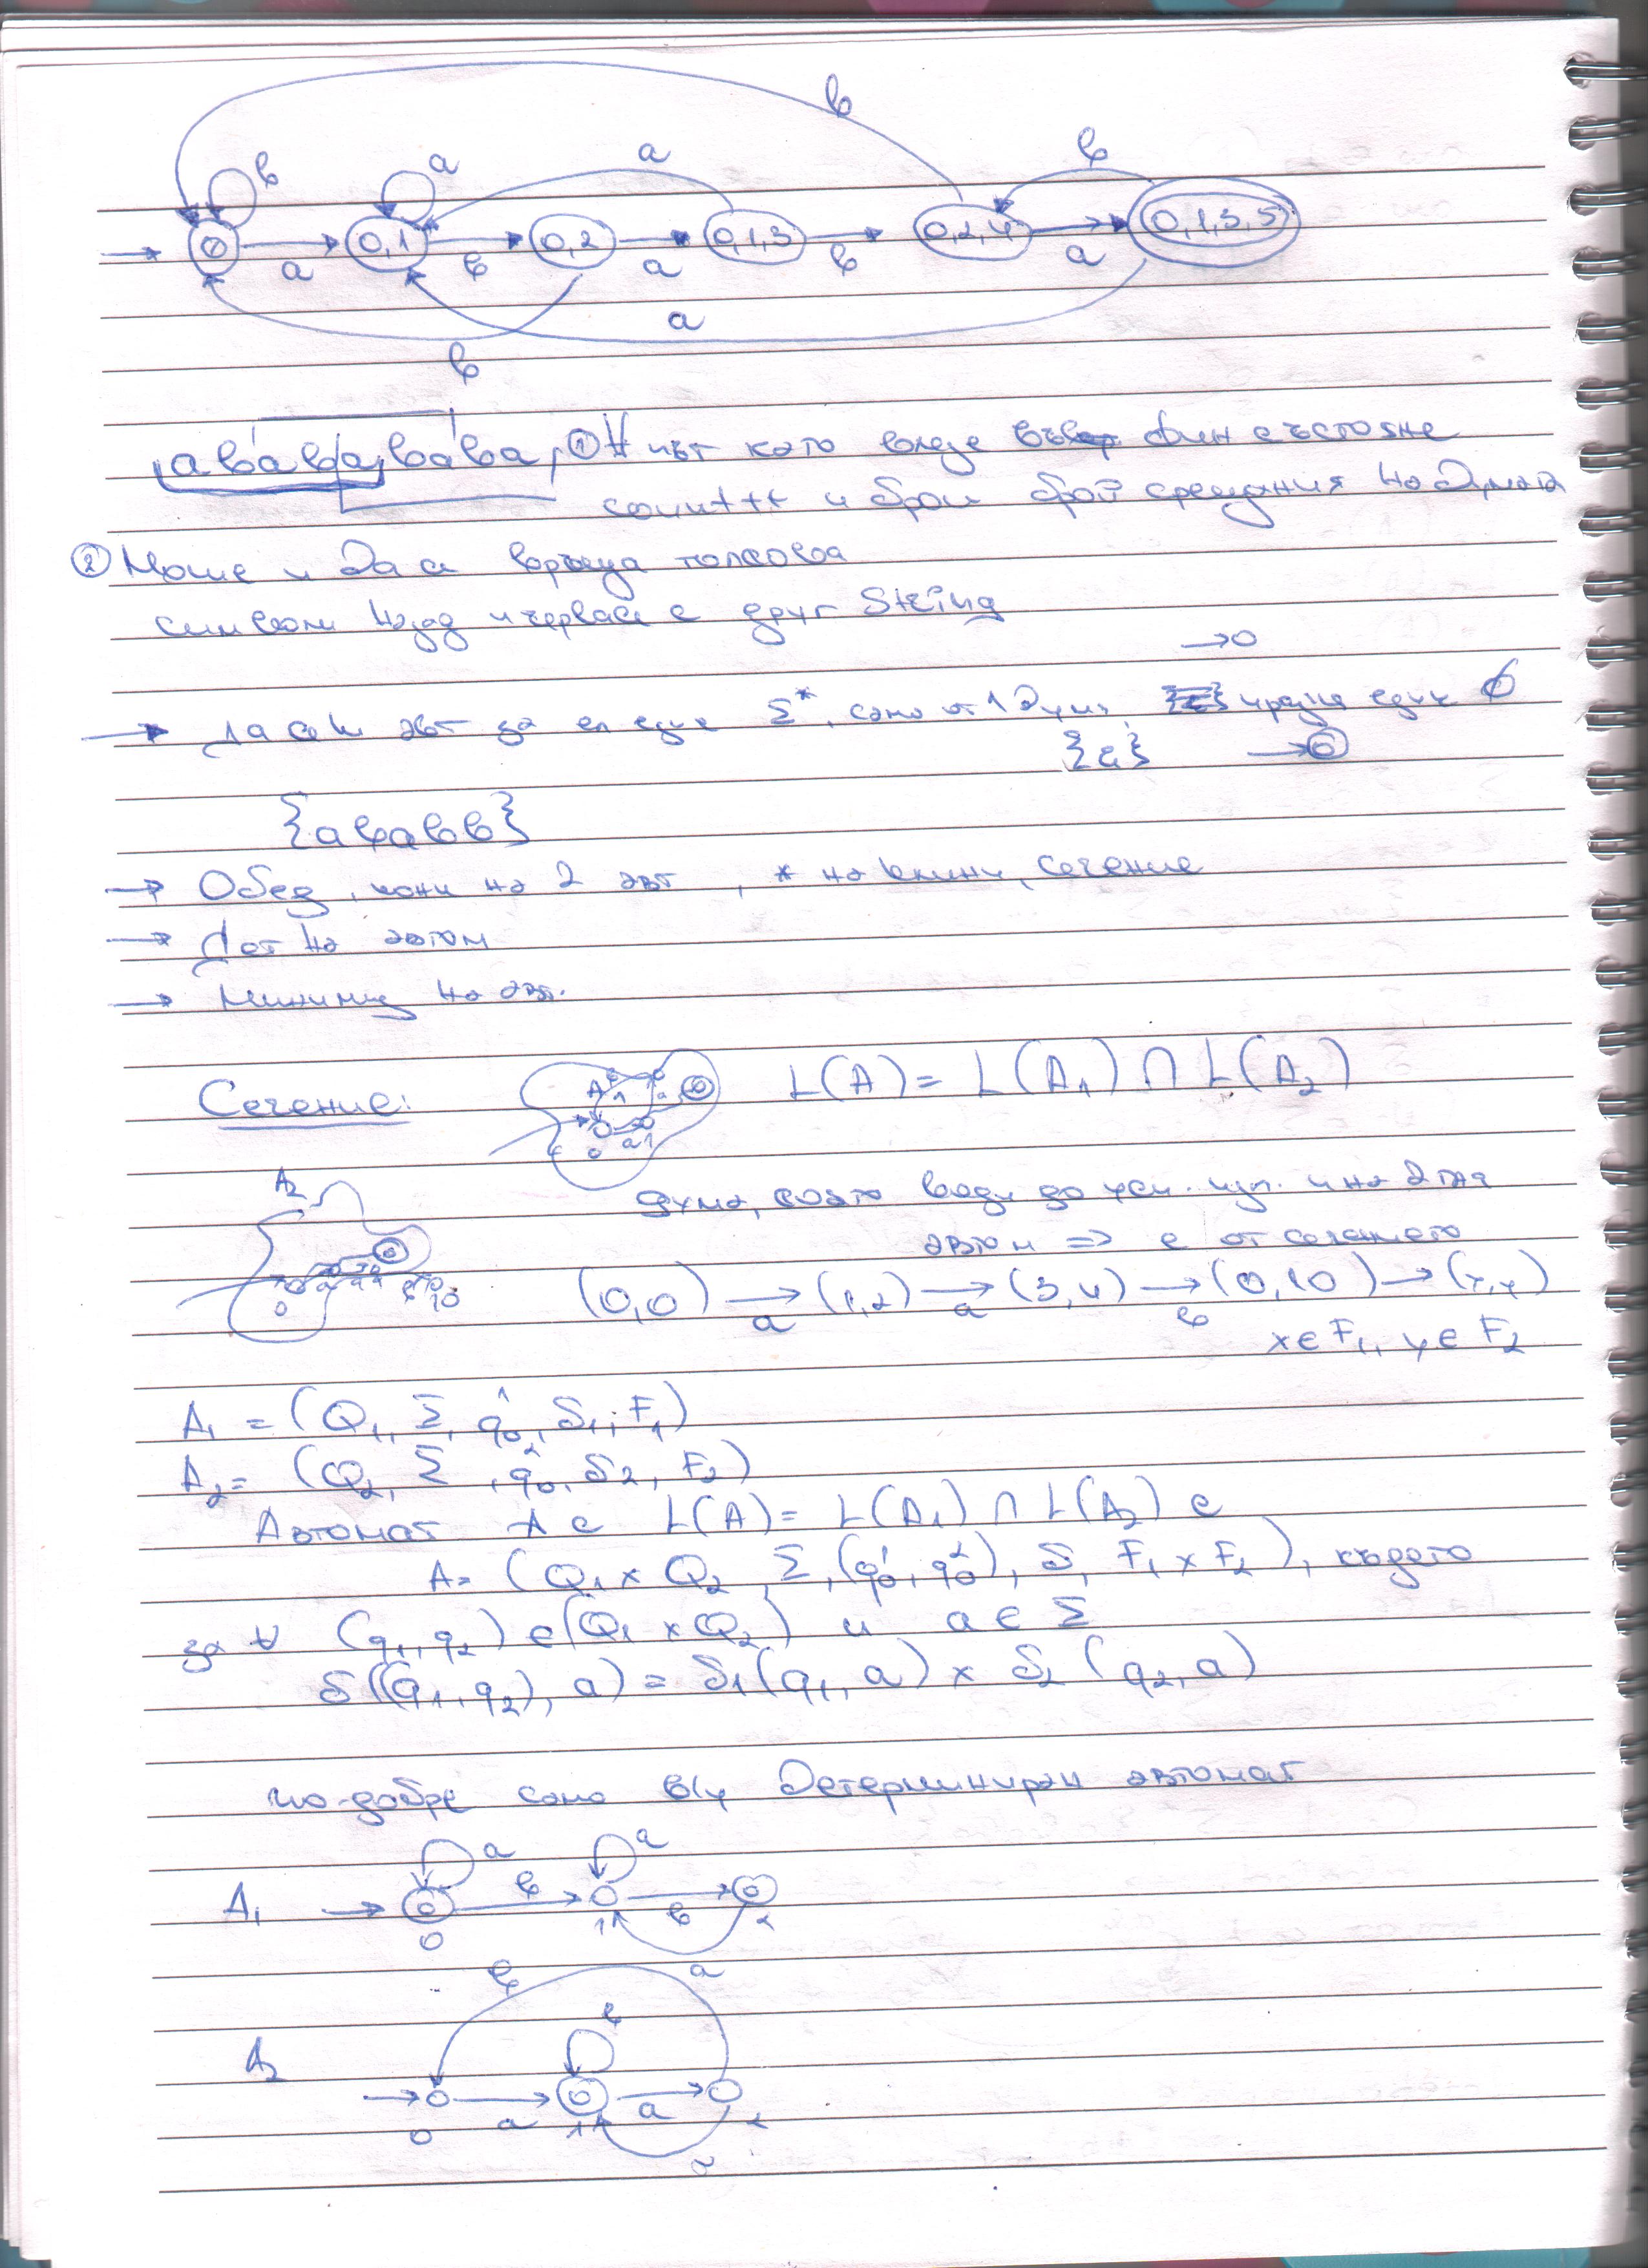 b
b a a b
0 0,1 0,2 0,1,3 0,2,4 0,1,3,5
a b a b a
a
b
ababababa, ① ∀ път като влезе във фин състояние
count++ и брои брой срещания на думата
② Може и да се връща толкова
символи назад и че е друг String
→ 0
→ авт за ел език Σ*, само от 1 дума, празния език ∅
{ε}
{ababb}
→ Обед, кон на 2 авт, * на Клини, сечение
→ Дет на автом
→ Миними на авт.
Сечение: A1 L(A) = L(A₁) ∩ L(A₂)
A₂ дума, която води до и на 2та
автом => е от сечението
(0,0) →a (1,2) →a (3,4) →b (0,10) → (x,y)
x∈F₁, y∈F₂
A₁ = (Q₁, Σ, q₀¹, δ₁, F₁)
A₂ = (Q₂, Σ, q₀², δ₂, F₂)
Автомат A с L(A) = L(A₁) ∩ L(A₂) е
A = (Q₁ x Q₂, Σ, (q₀¹, q₀²), δ, F₁ x F₂), където
за ∀ (q₁, q₂) ∈ (Q₁ x Q₂) и a ∈ Σ
δ((q₁, q₂), a) = δ₁(q₁, a) x δ₂(q₂, a)
по-добре само в/у Детерминиран автомат
a a
A₁ b b
0 1 2
a
b
b
A₂ a a
0 1 2
a